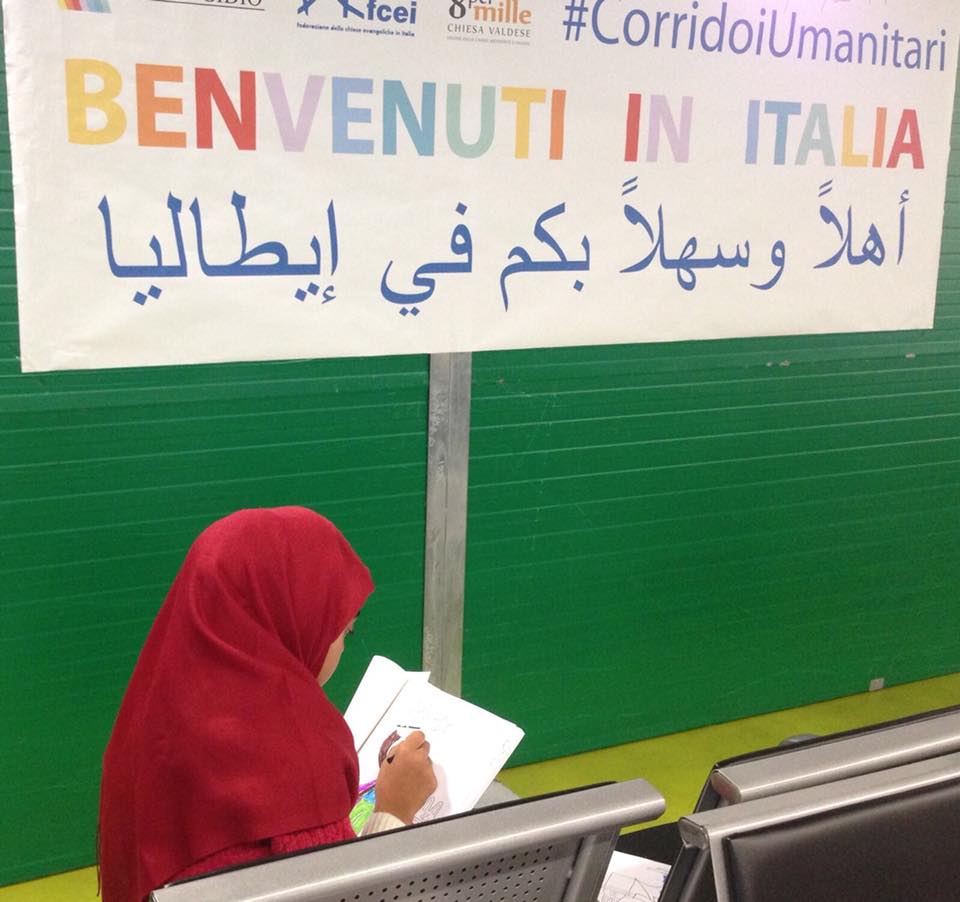 fcei
Federazione delle chiese evangeliche in Italia
8 per
mille
CHIESA VALDESE
#CorridoiUmanitari
BENVENUTI IN ITALIA
أهلاً وسهلاً بكم في إيطاليا